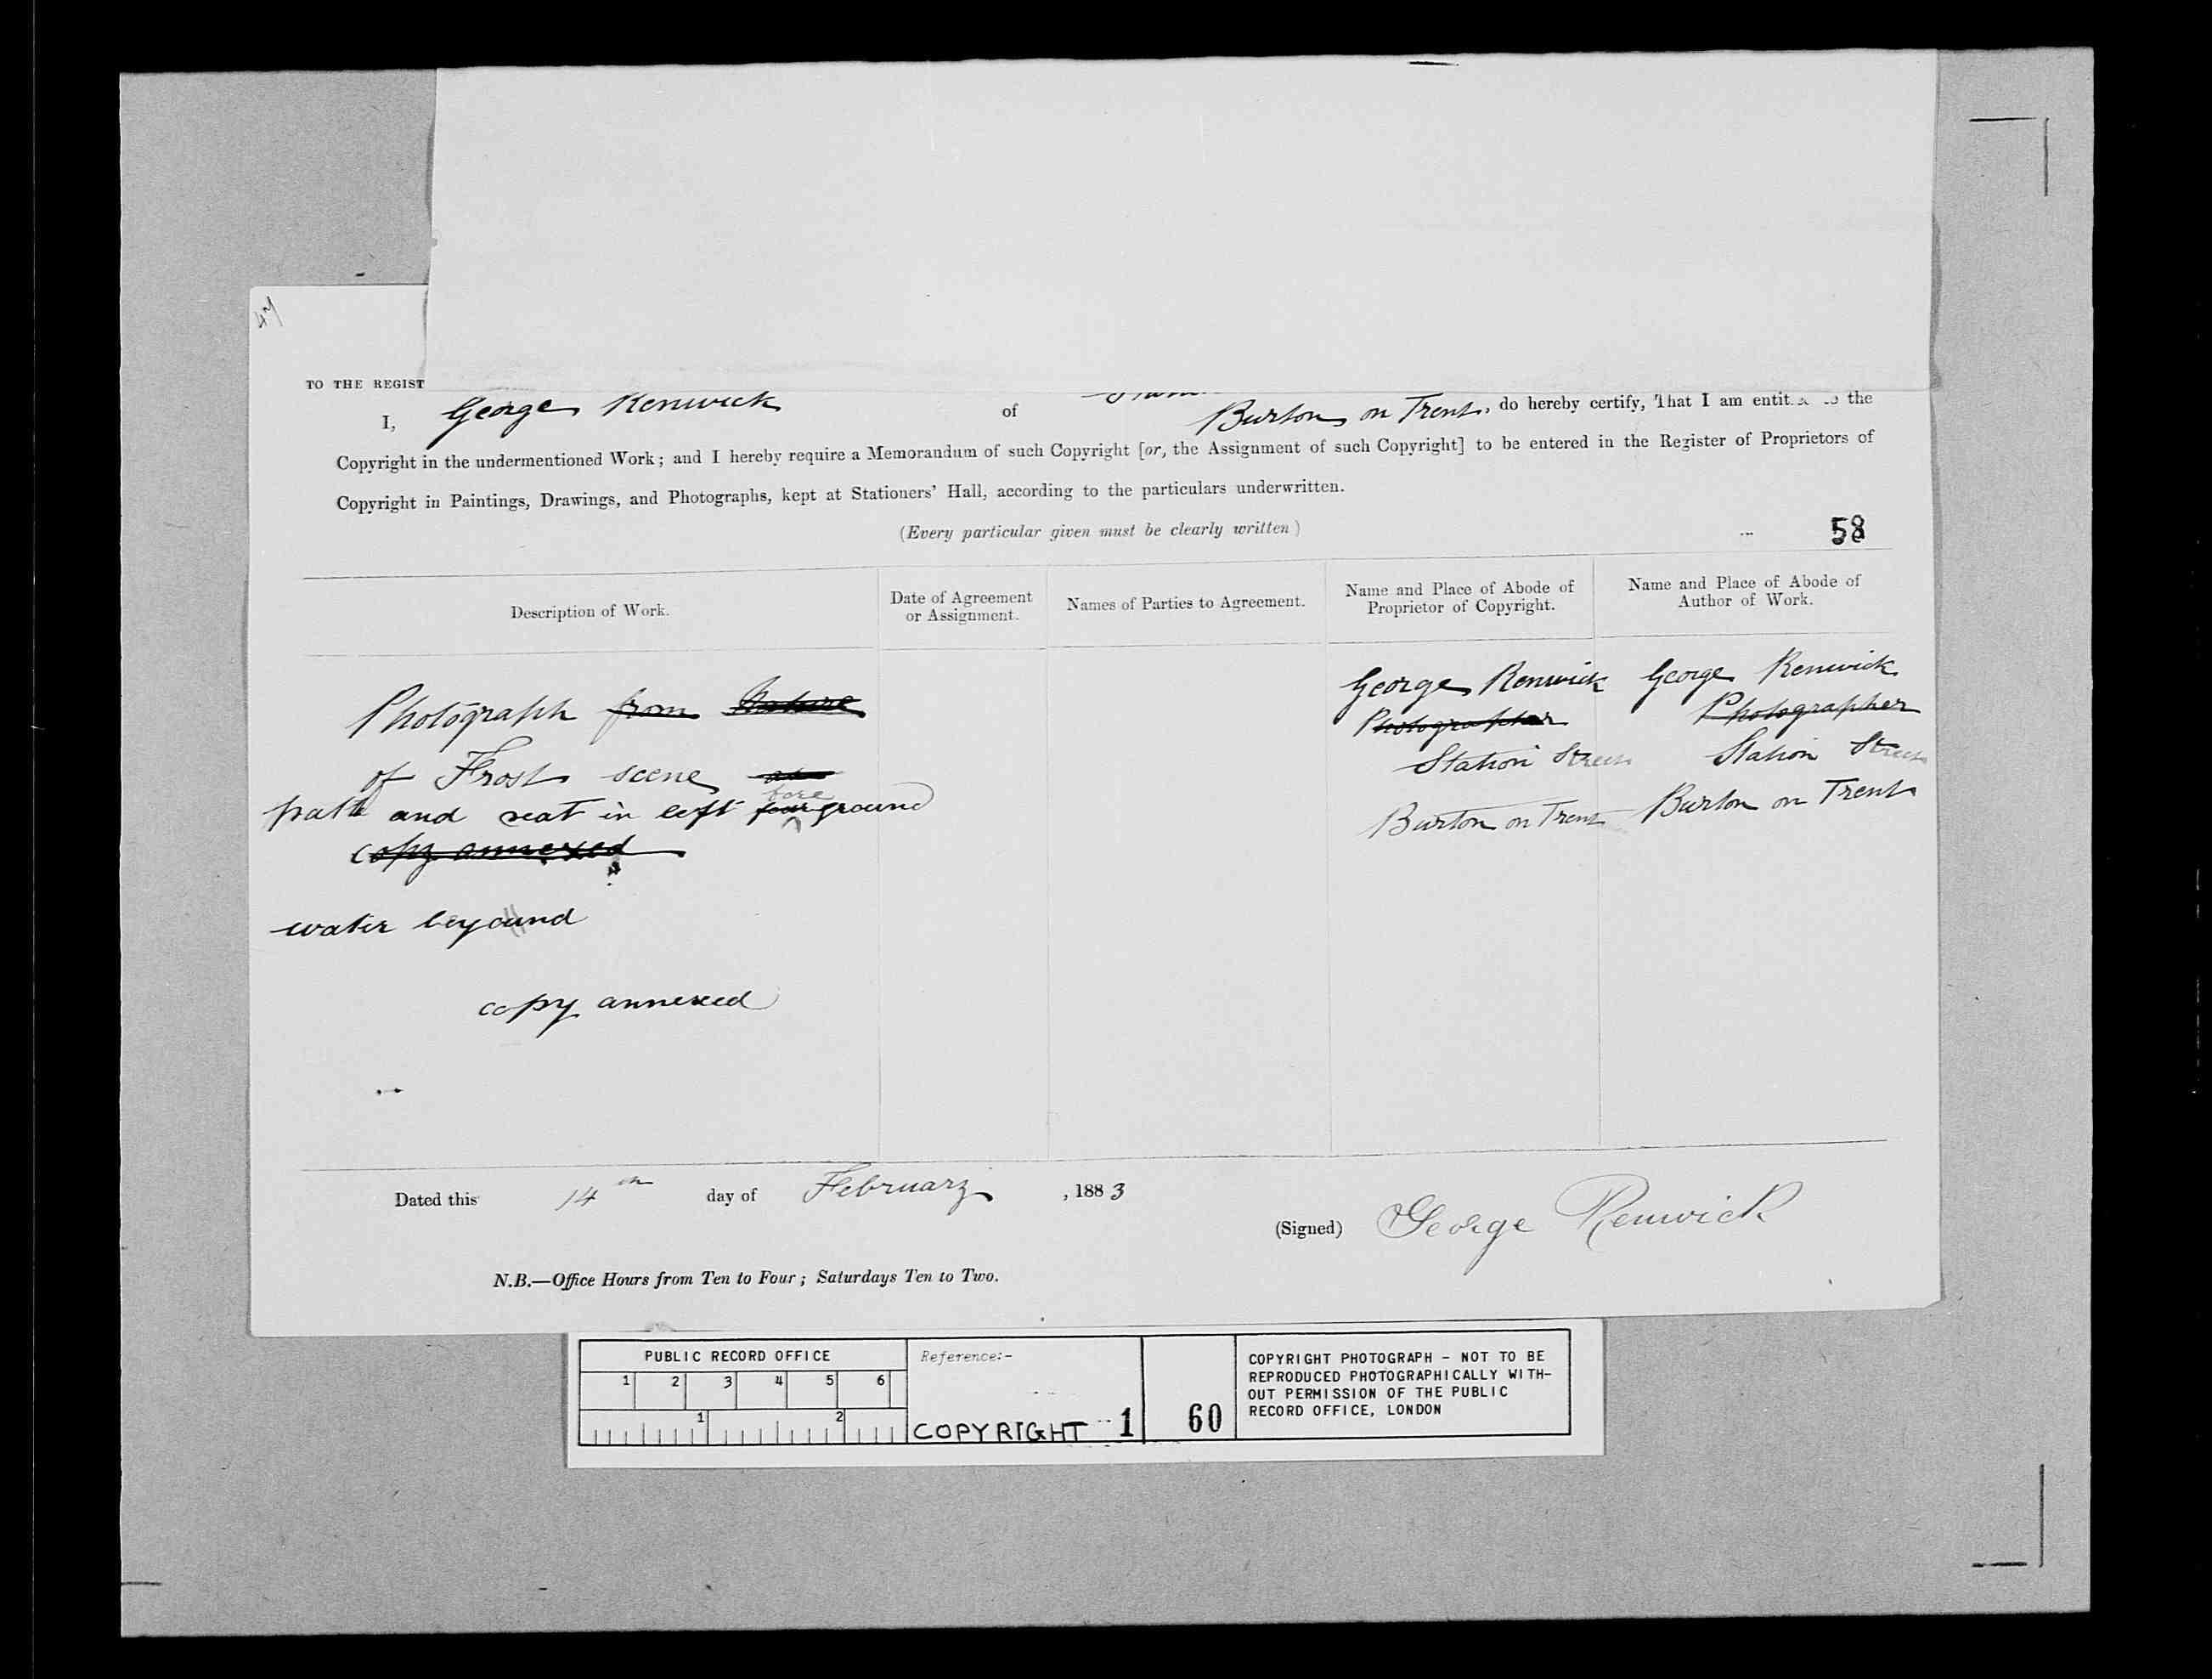 TO THE REGIST
I, George Renwick of Burton on Trent, do hereby certify, That I am the
Copyright in the undermentioned Work; and I hereby require a Memorandum of such Copyright [or, the Assignment of such Copyright] to be entered in the Register of Proprietors of
Copyright in Paintings, Drawings, and Photographs, kept at Stationers' Hall, according to the particulars underwritten.
(Every particular given must be clearly written)
58
Description of Work.
Date of Agreement
or Assignment.
Names of Parties to Agreement.
Name and Place of Abode of
Proprietor of Copyright.
Name and Place of Abode of
Author of Work.
Photograph from Nature
of Frost scene
path and seat in left fore ground
copy annexed
water beyound
copy annexed
George Renwick
Photographer
Station Street
Burton on Trent
George Renwick
Photographer
Station Street
Burton on Trent
Dated this 14th day of February, 1883
(Signed) George Renwick
N.B.—Office Hours from Ten to Four; Saturdays Ten to Two.
PUBLIC RECORD OFFICE
1 2 3 4 5 6
1 2
Reference:-
COPYRIGHT 1
60
COPYRIGHT PHOTOGRAPH - NOT TO BE
REPRODUCED PHOTOGRAPHICALLY WITH-
OUT PERMISSION OF THE PUBLIC
RECORD OFFICE, LONDON